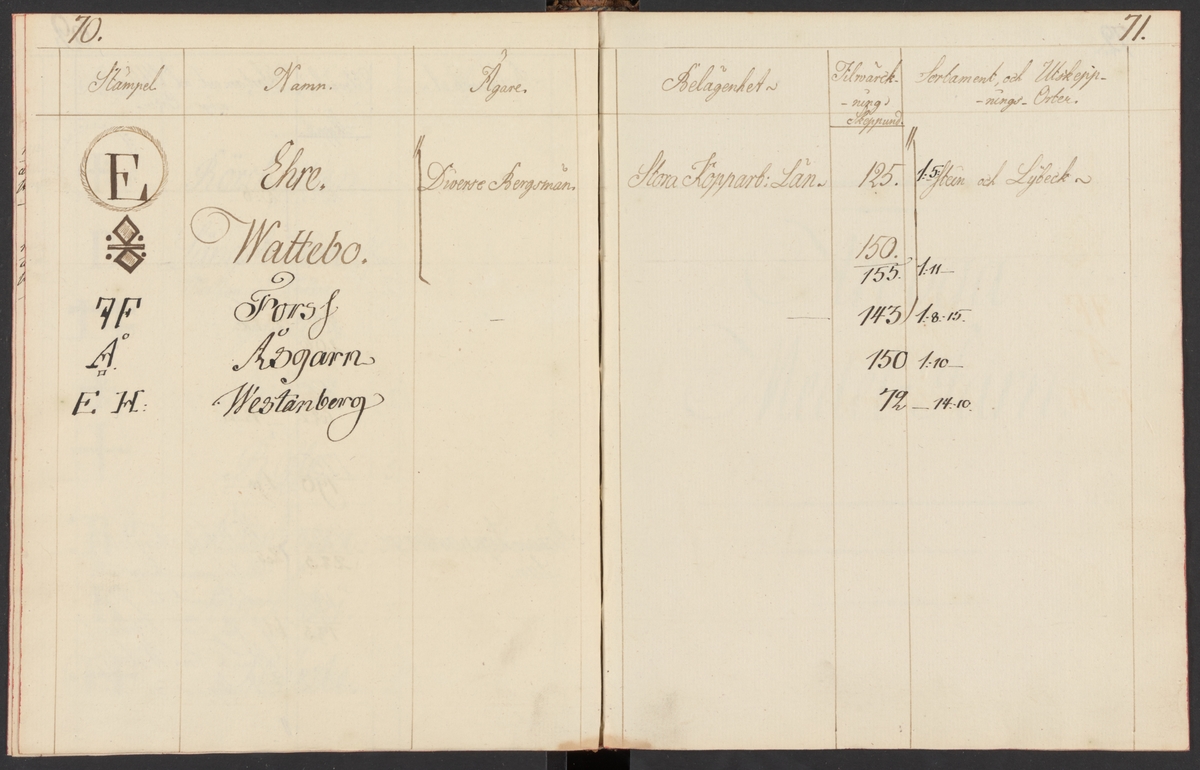 70.
Stämpel Namn. Ägare.
E Ehre. Diverse Bergsmän.
Wattebo.
Forss
Å Åsgarn
E. H. Westanberg
71.
Belägenhet Tilwärck- Sortament, och Utskepp-
-nings -nings- Orter.
Skeppund.
Stora Kopparb: Län. 125. 1:5 och Lybeck
150.
155. 1:11—
143 1:8:15.
150 1:10—
72 — 14:10.